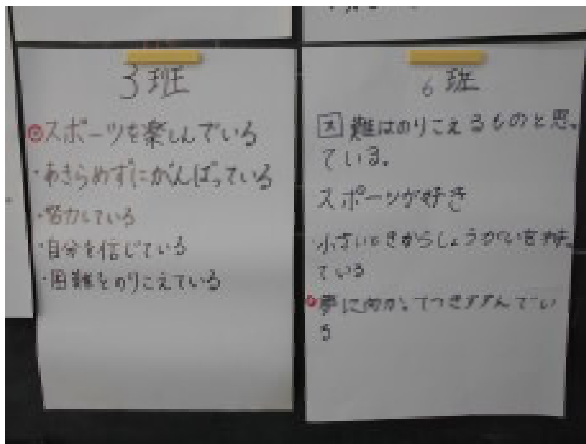 3班
◎スポーツを楽しんでいる
・あきらめずにがんばっている
・努力している
・自分を信じている
・困難をのりこえている
6班
困難はのりこえるものと思っ
ている。
スポーツが好き
小さいときからしょうがいを持っ
ている
夢に向かってつきすすんでい
る